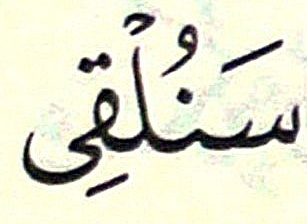 سَنُلْقِى